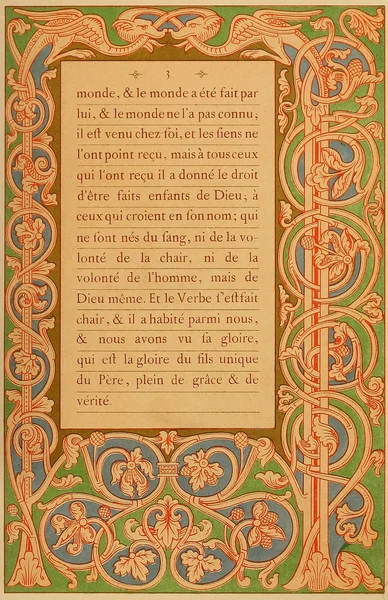 3
monde, & le monde a été fait par
lui, & le monde ne l'a pas connu;
il eſt venu chez ſoi, et les ſiens ne
l'ont point reçu, mais à tous ceux
qui l'ont reçu il a donné le droit
d'être faits enfants de Dieu; à
ceux qui croient en ſon nom; qui
ne ſont nés du ſang, ni de la vo-
lonté de la chair, ni de la
volonté de l'homme, mais de
Dieu même. Et le Verbe ſ'eſt fait
chair, & il a habité parmi nous,
& nous avons vu ſa gloire,
qui eſt la gloire du fils unique
du Père, plein de grâce & de
vérité.